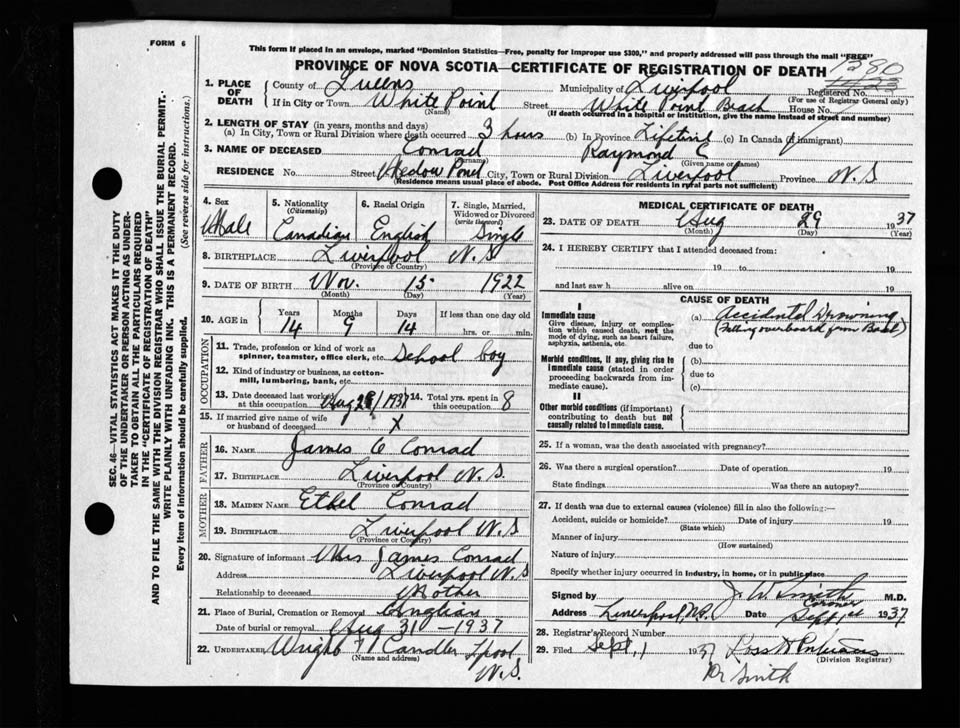 FORM 6
This form if placed in an envelope, marked "Dominion Statistics—Free, penalty for improper use $300," and properly addressed will pass through the mail "FREE"
PROVINCE OF NOVA SCOTIA—CERTIFICATE OF REGISTRATION OF DEATH
1280
Registered No.
(For use of Registrar General only)
1. PLACE OF DEATH
County of Queens Municipality of Liverpool
If in City or Town White Point Street White Point Beach House No.
(Name) (If death occurred in a hospital or institution, give the name instead of street and number)
2. LENGTH OF STAY (in years, months and days)
(a) In City, Town or Rural Division where death occurred 3 hours (b) In Province Lifetime (c) In Canada (if immigrant)
3. NAME OF DECEASED Conrad Raymond C
(Surname) (Given name or names)
RESIDENCE No. Street Meadow Pond City, Town or Rural Division Liverpool Province N.S
(Residence means usual place of abode. Post Office Address for residents in rural parts not sufficient)
4. Sex
Male
5. Nationality
(Citizenship)
Canadian
6. Racial Origin
English
7. Single, Married, Widowed or Divorced
(write the word)
Single
8. BIRTHPLACE Liverpool N.S
(Province or Country)
9. DATE OF BIRTH Nov. 15 1922
(Month) (Day) (Year)
10. AGE in Years Months Days If less than one day old
14 9 14 hrs. or min.
OCCUPATION
11. Trade, profession or kind of work as spinner, teamster, office clerk, etc. School boy
12. Kind of industry or business, as cotton-mill, lumbering, bank, etc.
13. Date deceased last worked at this occupation Aug 28/1937
14. Total yrs. spent in this occupation 8
15. If married give name of wife or husband of deceased X
FATHER
16. NAME James C Conrad
17. BIRTHPLACE Liverpool N.S.
(Province or Country)
MOTHER
18. MAIDEN NAME Ethel Conrad
19. BIRTHPLACE Liverpool N.S
(Province or Country)
20. Signature of informant Mrs James Conrad
Address Liverpool N.S
Relationship to deceased Mother
21. Place of Burial, Cremation or Removal Anglian
Date of burial or removal Aug 31 - 1937
22. UNDERTAKER Wright Candler Lpool N.S.
(Name and address)
MEDICAL CERTIFICATE OF DEATH
23. DATE OF DEATH Aug 29 1937
(Month) (Day) (Year)
24. I HEREBY CERTIFY that I attended deceased from:
19 to 19
and last saw h alive on 19
CAUSE OF DEATH
I
Immediate cause
Give disease, injury or complication which caused death, not the mode of dying, such as heart failure, asphyxia, asthenia, etc.
(a) Accidental Drowning
(Falling overboard from Boat)
due to
Morbid conditions, if any, giving rise to immediate cause (stated in order proceeding backwards from immediate cause).
(b)
due to
(c)
II
Other morbid conditions (if important) contributing to death but not causally related to immediate cause.
25. If a woman, was the death associated with pregnancy?
26. Was there a surgical operation? Date of operation 19
State findings Was there an autopsy?
27. If death was due to external causes (violence) fill in also the following:—
Accident, suicide or homicide? Date of injury 19
(State which)
Manner of injury
(How sustained)
Nature of injury
Specify whether injury occurred in industry, in home, or in public place
Signed by J. W. Smith M.D.
Coroner
Address Liverpool, N.S. Date Sept 1st 1937
28. Registrar's Record Number
29. Filed Sept, 1 1937 Ross
(Division Registrar)
Dr Smith
SEC. 46—VITAL STATISTICS ACT MAKES IT THE DUTY
OF THE UNDERTAKER OR PERSON ACTING AS UNDER-
TAKER TO OBTAIN ALL THE PARTICULARS REQUIRED
IN THE "CERTIFICATE OF REGISTRATION OF DEATH"
AND TO FILE THE SAME WITH THE DIVISION REGISTRAR WHO SHALL ISSUE THE BURIAL PERMIT.
WRITE PLAINLY WITH UNFADING INK. THIS IS A PERMANENT RECORD.
Every item of information should be carefully supplied. (See reverse side for instructions.)